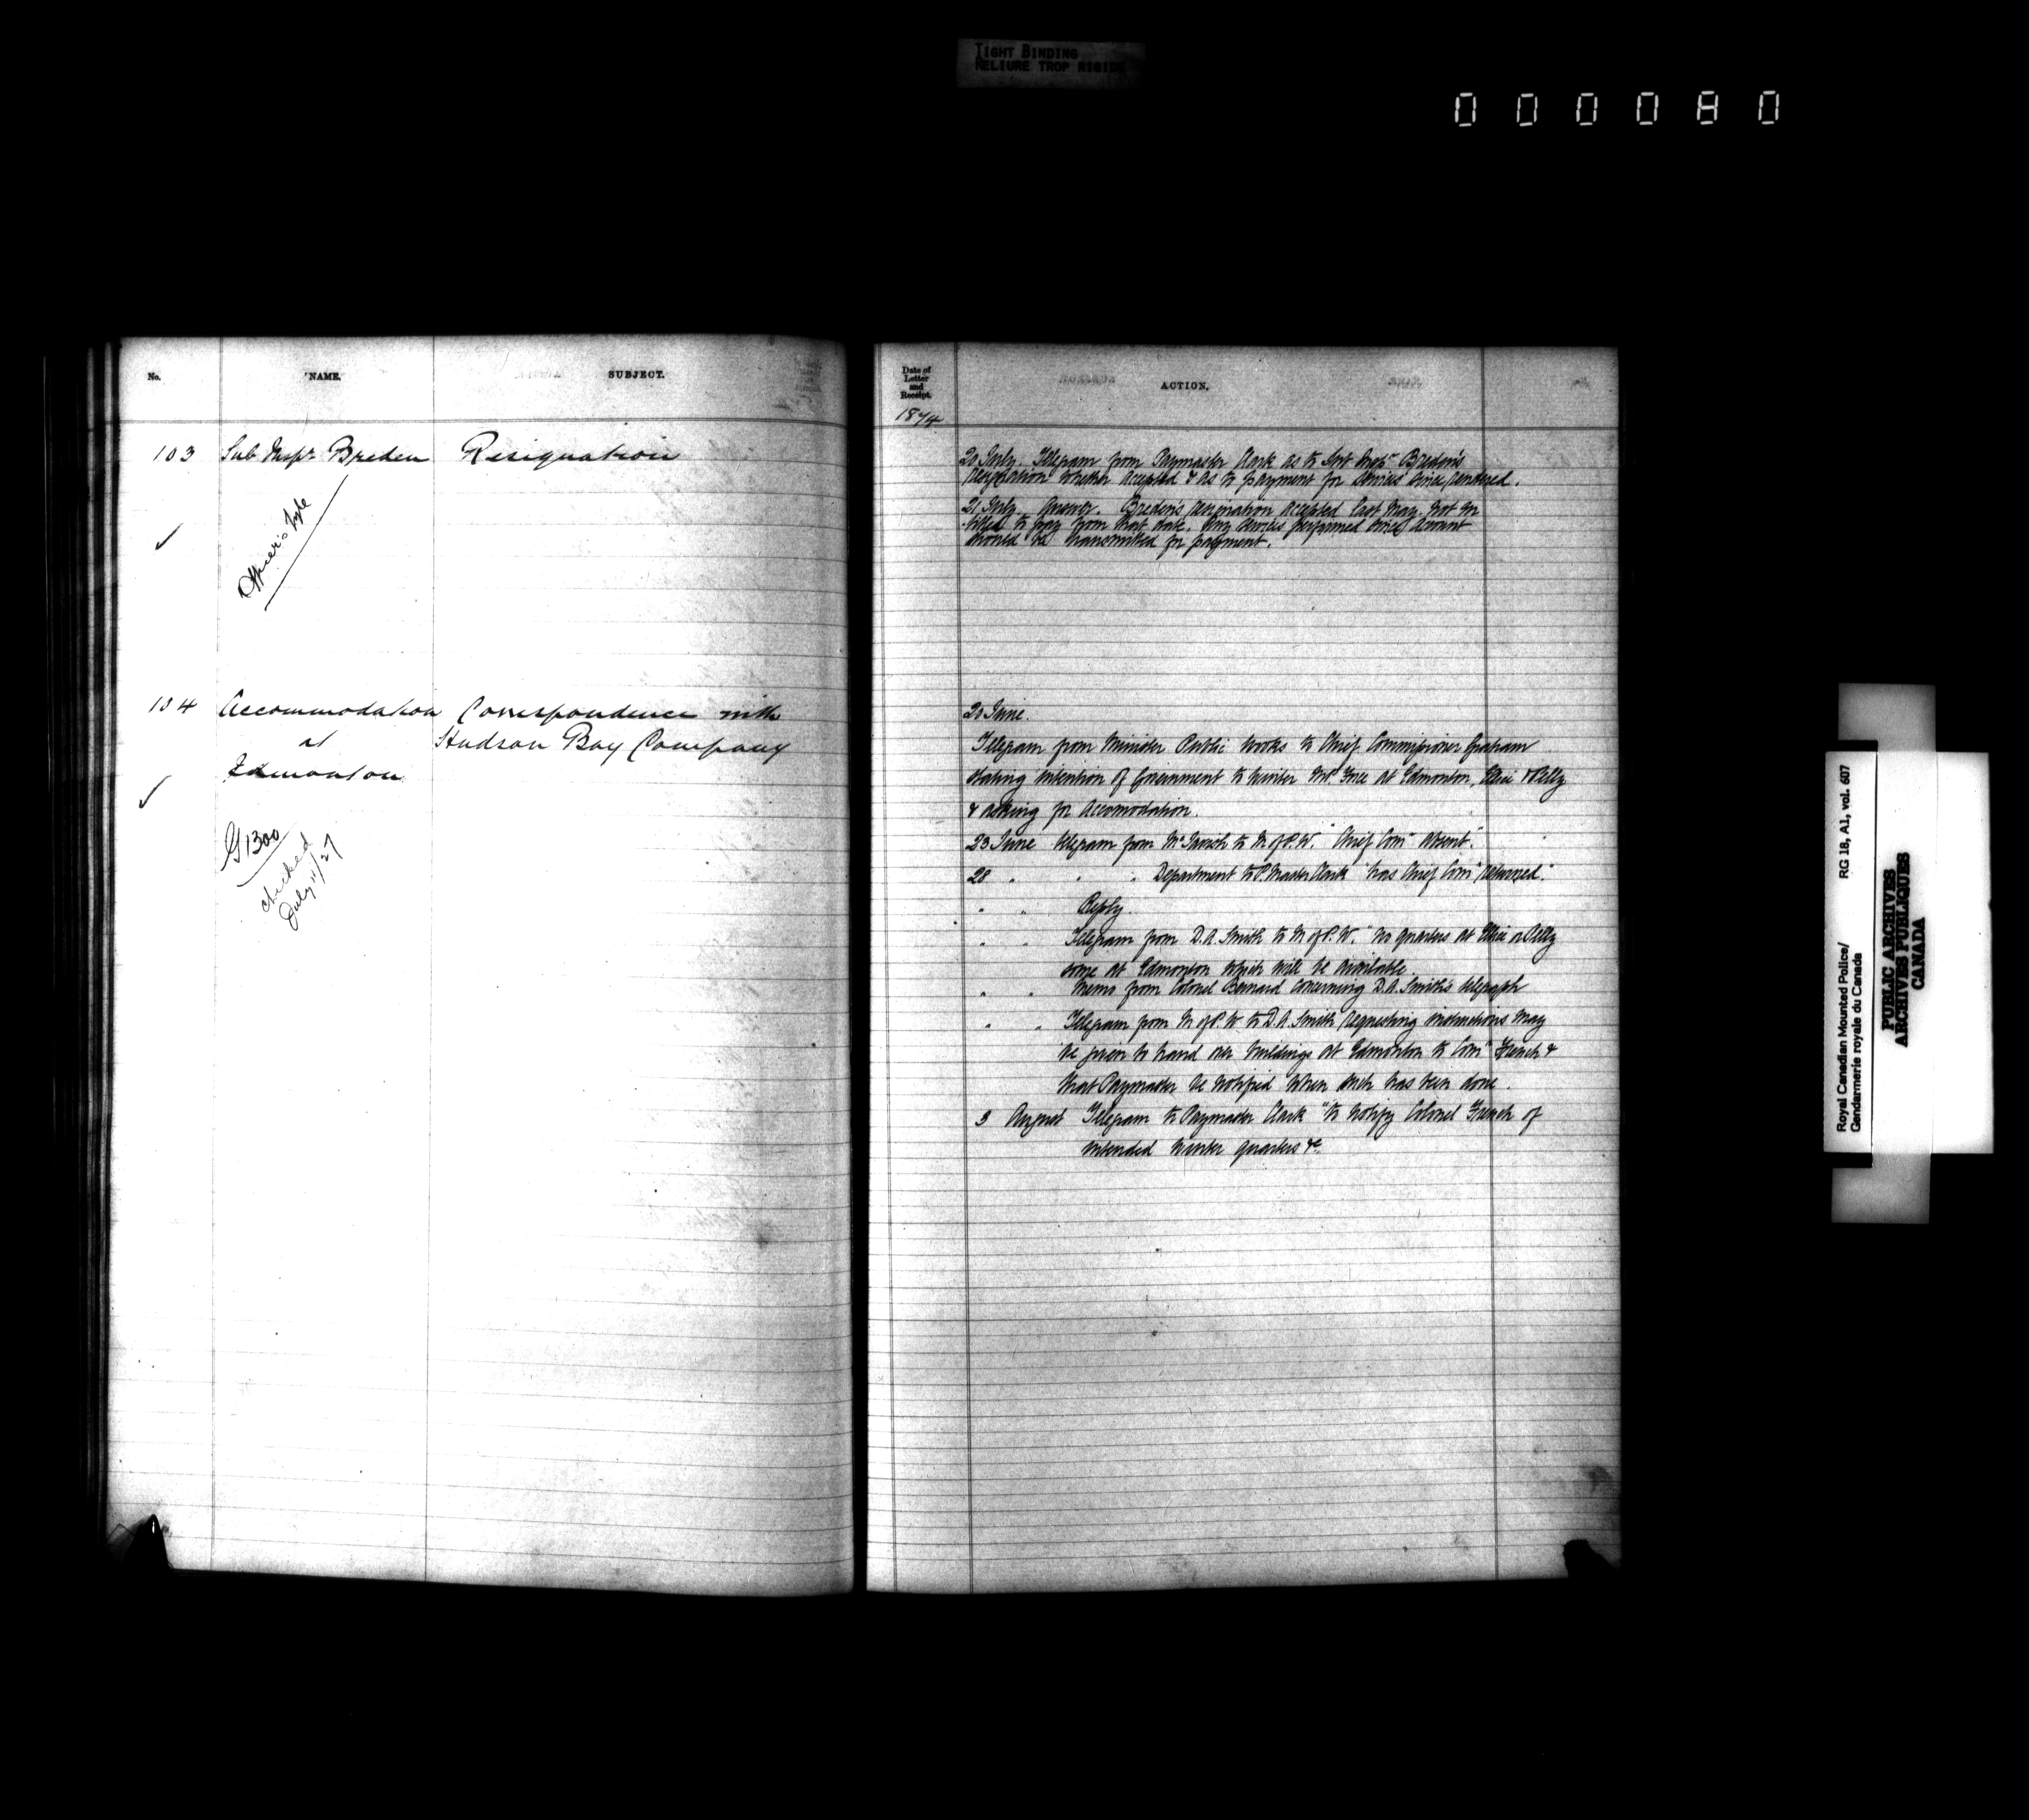 TIGHT BINDING
RELIURE TROP RIGIDE
000080
No. NAME. SUBJECT.
103 Sub Inspr Breden Resignation
Officer's file
104 Accommodation Correspondence with
at Hudson Bay Company
Edmonton
G1300
checked
July 11/27
Date of
Letter
and
Receipt.
ACTION.
1874
20 July. Telegram from Paymaster Clark as to Insp Breden's
resignation whether accepted & as to payment for services since rendered.
21 July. Answer. Breden's resignation accepted last May. Not en
titled to pay from that date. Any services performed since account
should be transmitted for payment.
20 June.
Telegram from Minister Public Works to Chief Commissioner Graham
stating intention of Government to winter M.P. Force at Edmonton, Ellice & Pelly
& asking for accomodation.
23 June telegram from McTavish to M of P.W. "Chief Comr absent".
28 " " " Department to P. Master Clark "has Chief Comr returned."
" " Reply.
" " Telegram from D.A. Smith to M of P.W. "no quarters at Ellice or Pelly
some at Edmonton which will be available
" " Memo from Colonel Bernard concerning D.A. Smith's telegraph
" " Telegram from M of P.W to D.A. Smith requesting instructions may
be given to hand over buildings at Edmonton to Comr French &
that Paymaster be notified when such has been done.
3 August Telegram to Paymaster Clark "to notify Colonel French of
intended winter quarters &c.
Royal Canadian Mounted Police/
Gendarmerie royale du Canada
RG 18, A1, vol. 607
PUBLIC ARCHIVES
ARCHIVES PUBLIQUES
CANADA